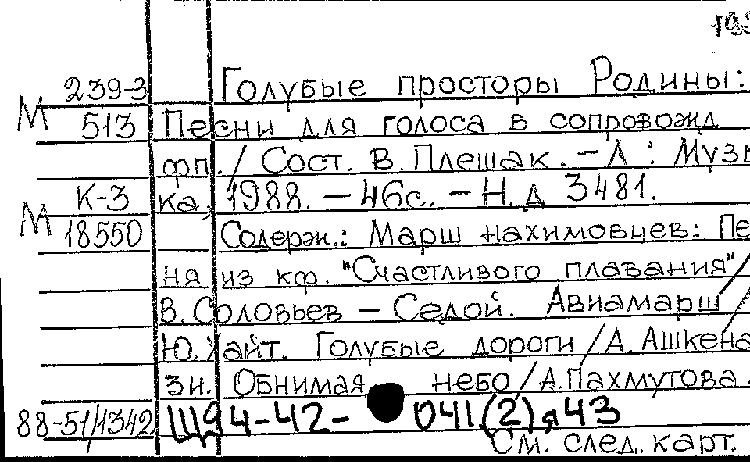 239-3 Голубые просторы Родины:
М 513 Песни для голоса в сопровожд
фп. / Сост. В. Плешак. – Л : Музы
К-3 ка, 1988. – 46с. – Н. д 3481.
М 18550 Содерж.: Марш нахимовцев: Пе
ня из кф. "Счастливого плавания" /
В. Соловьев – Седой. Авиамарш /
Ю. Хайт. Голубые дороги / А. Ашкена
зи. Обнимая небо / А. Пахмутова.
88-51/1342 Щ94-42- 041(2)я43
См. след. карт.